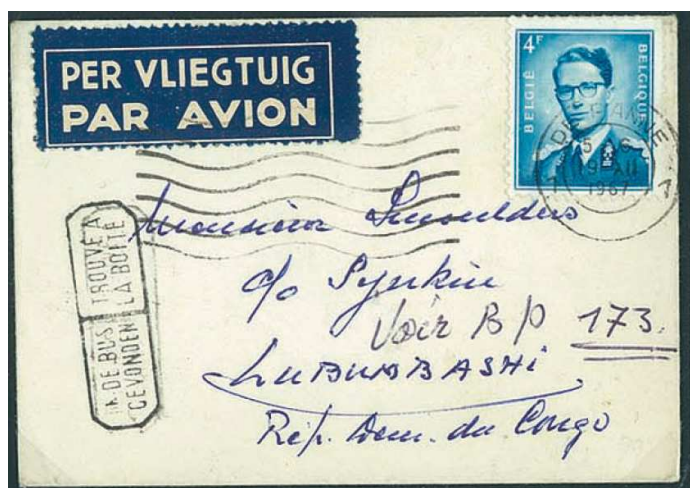 PER VLIEGTUIG
PAR AVION
4F
BELGIË
BELGIQUE
DE PANNE
19-XII
1967
TROUVÉ A
LA BOITE
DE BUS
GEVONDEN
Monsieur Smoulders
c/o Synkin
Voir BP 173.
LUBUMBASHI
Rép. Dem. du Congo